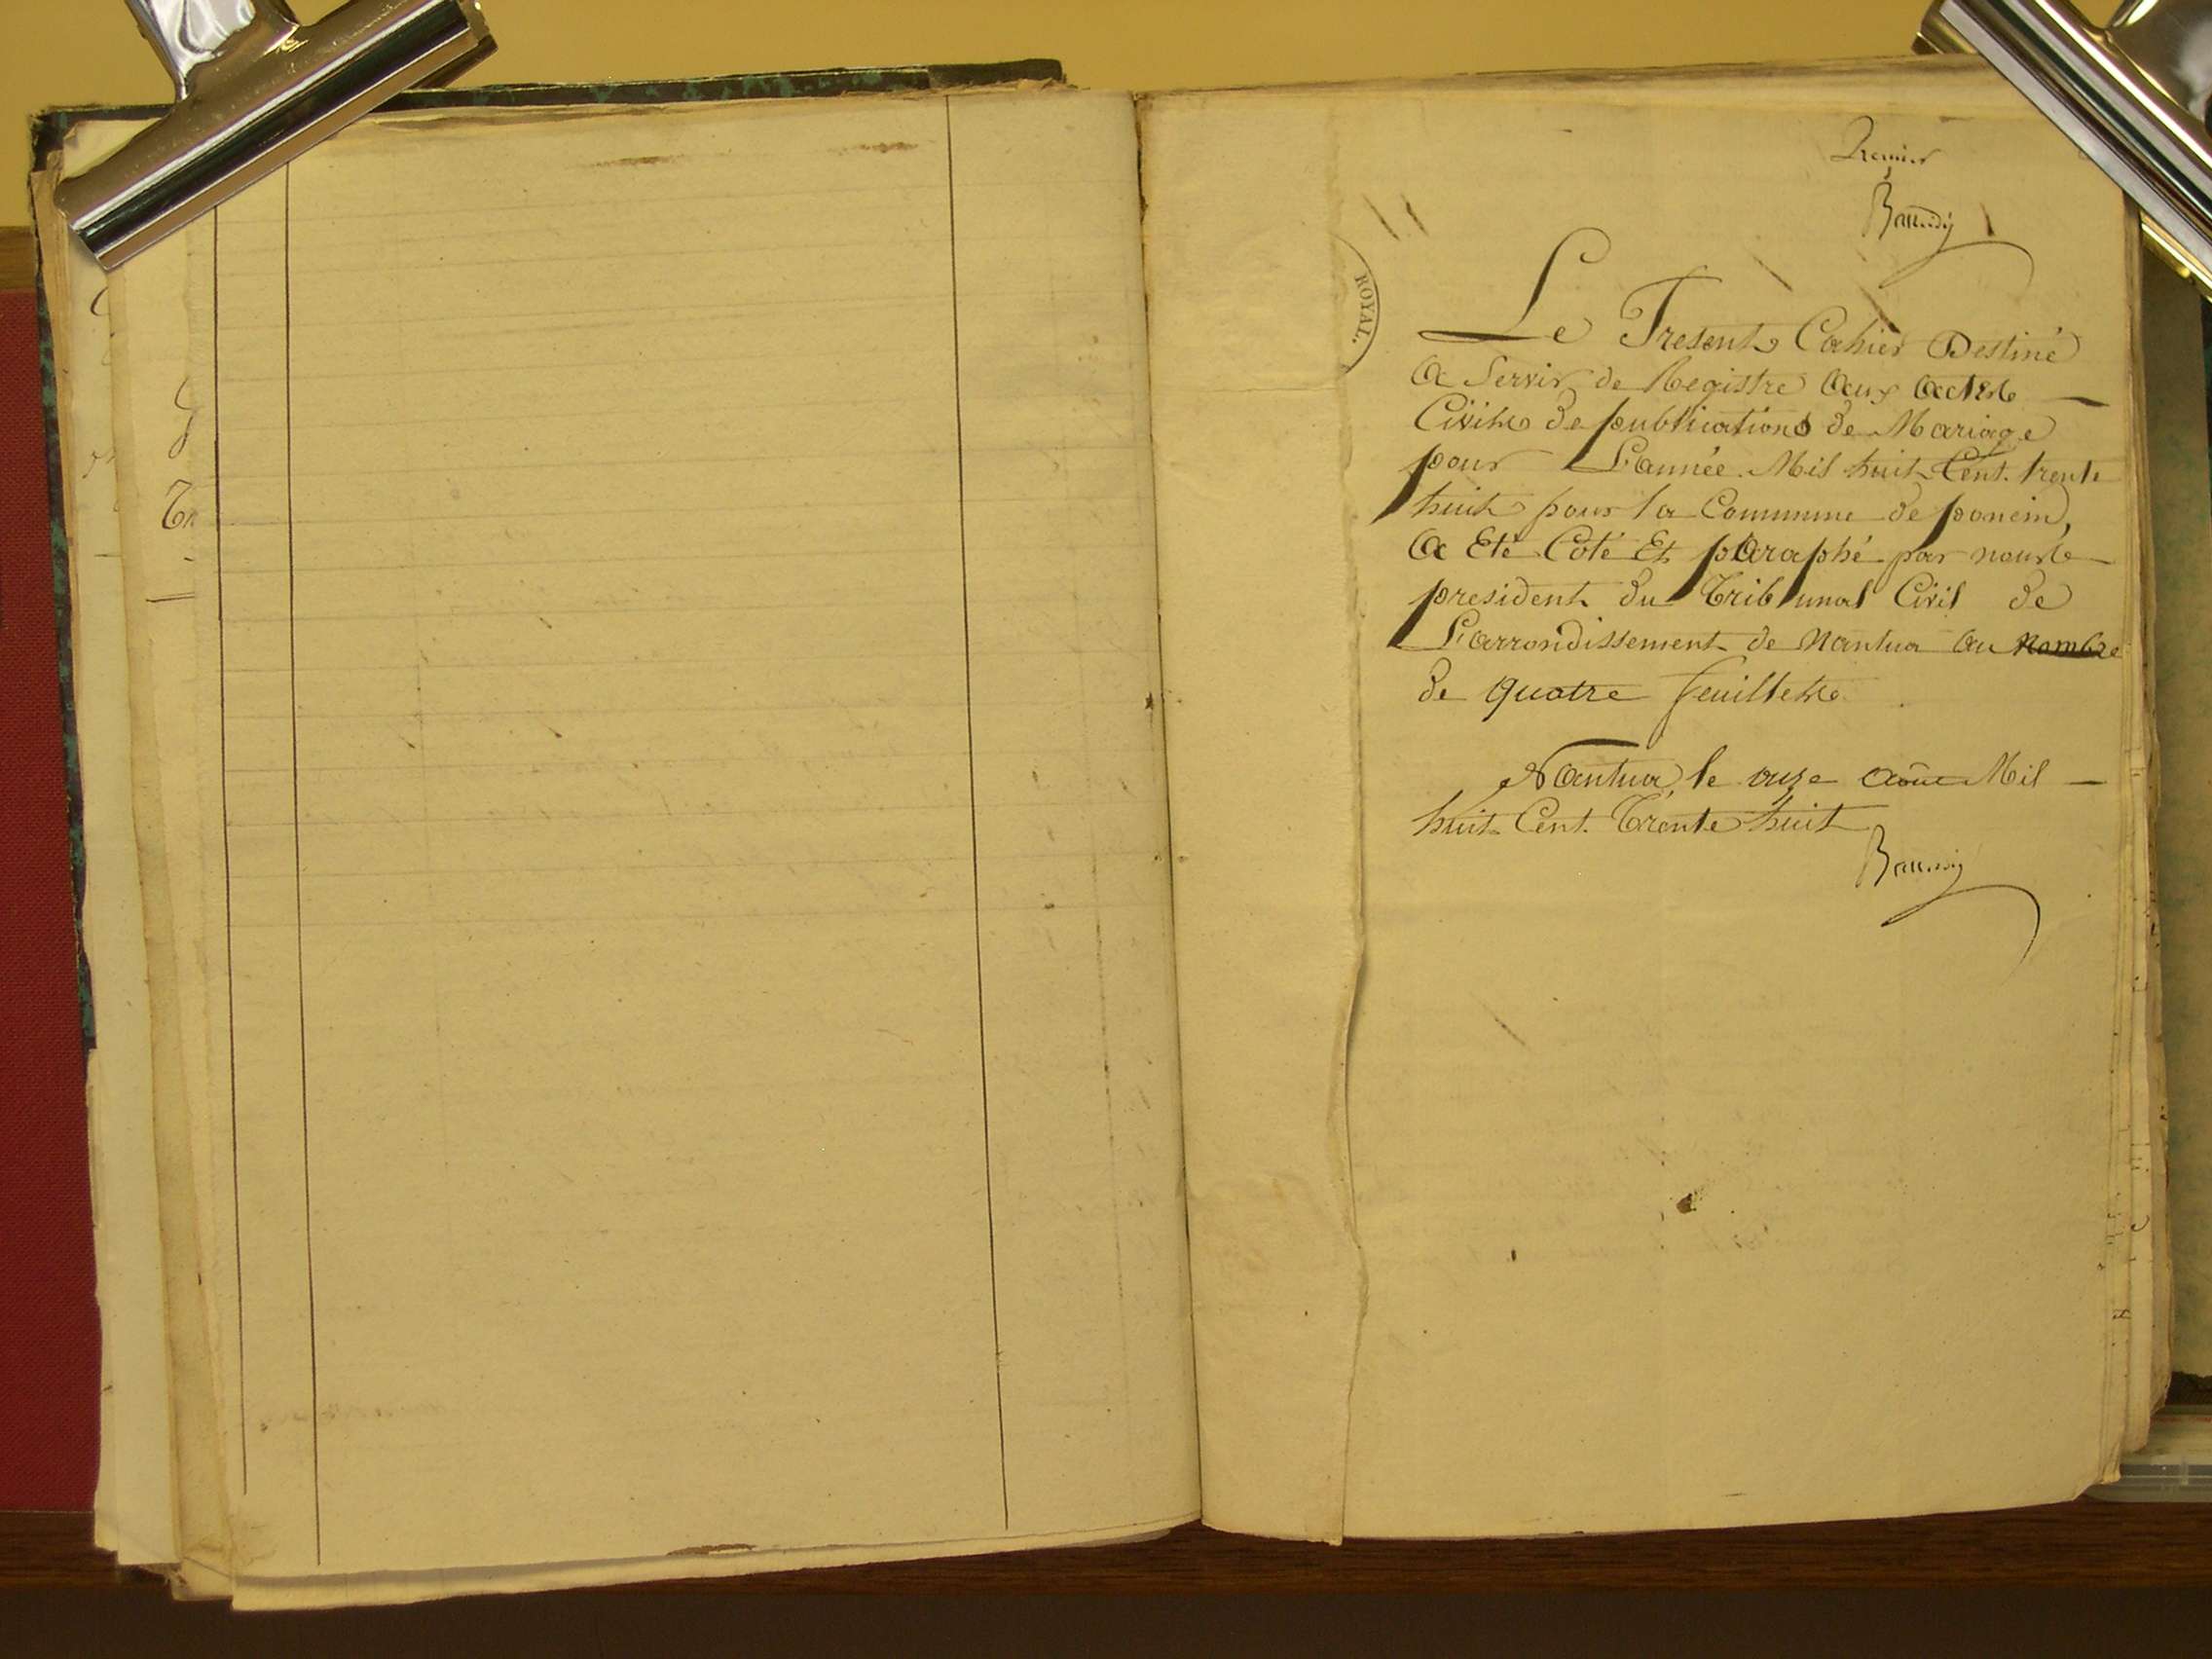 Premier
ROYAL.
Le Present Cahier Destiné
a Servir de Registre aux actes
Civiles de publications de Mariage
pour L'année Mil huit Cent trente
huit pour la Commune de poncin,
a Eté Coté Et paraphé par nous le
president du Tribunal Civil de
L'arrondissement de Nantua au Nombre
de quatre feuilletes
Nantua, le onze août Mil
huit Cent Trente huit